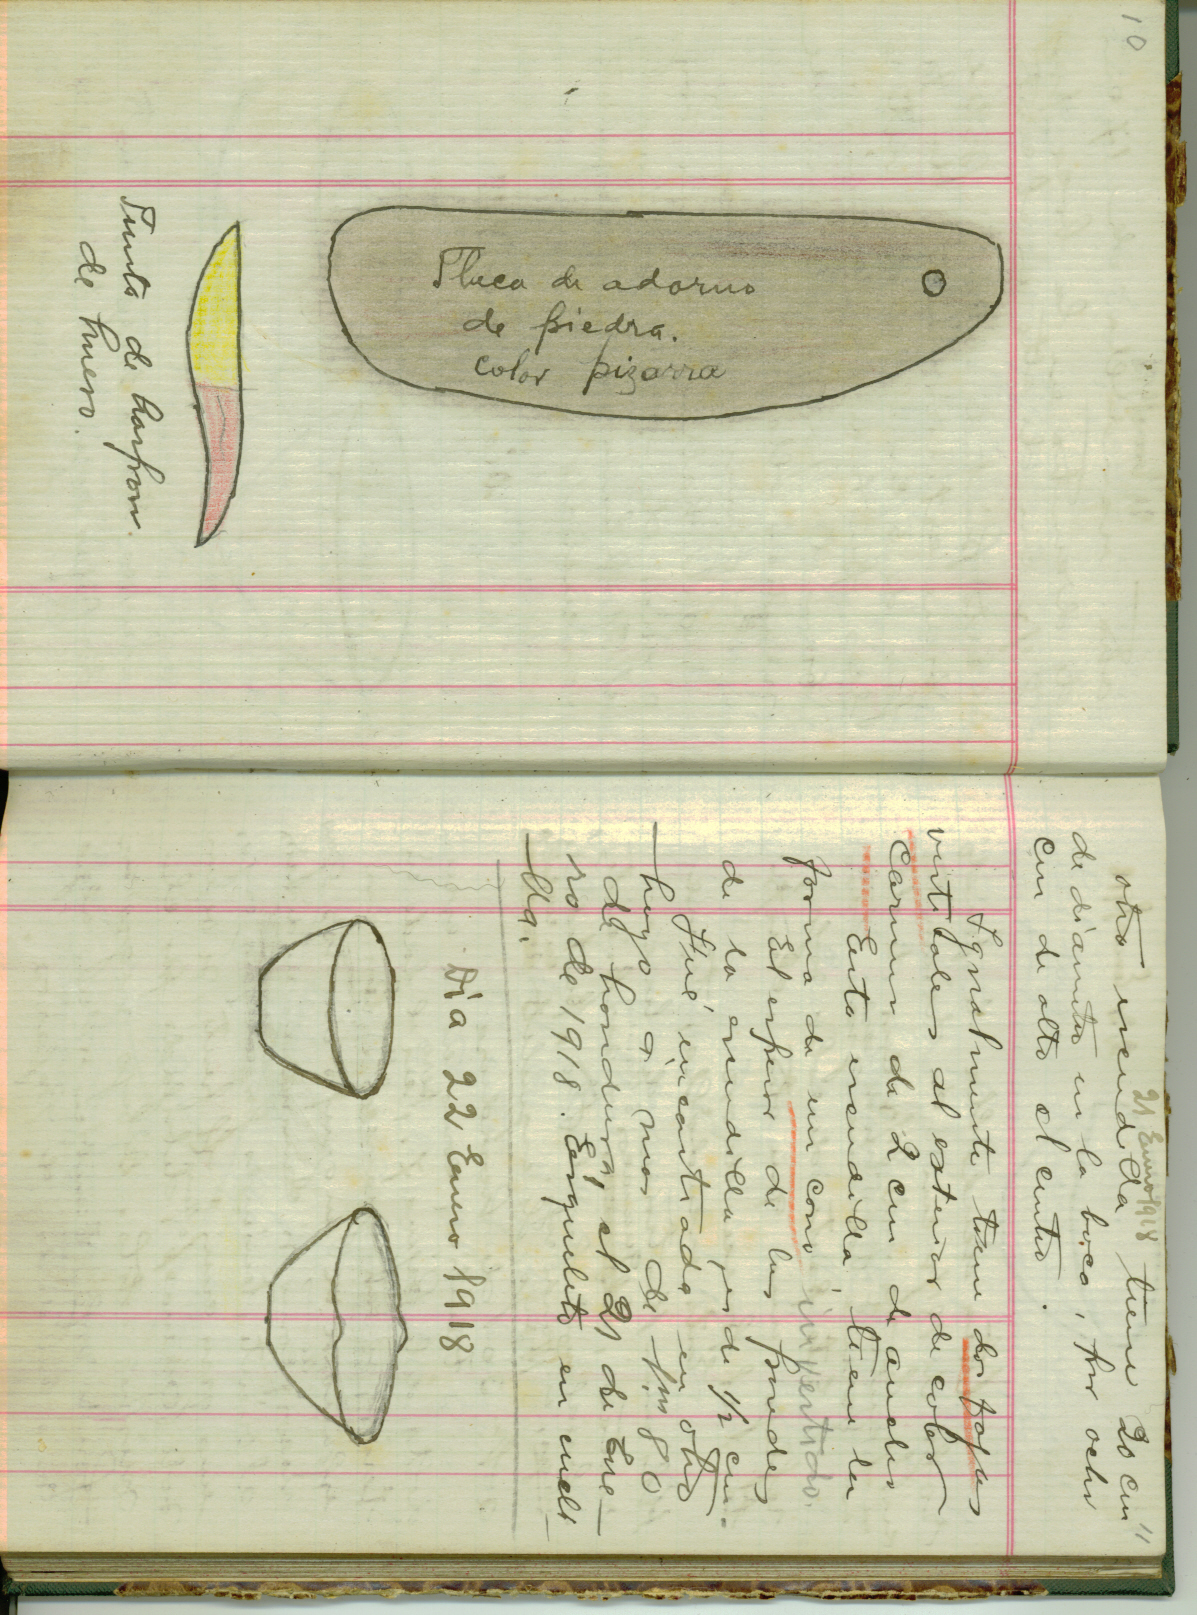 10
Placa de adorno
de piedra.
color pizarra
Punta de harpon
de hueso.
11
21 Enero 1918
otra escudilla tiene 20 cm
de diametro en la boca, por ocho
cm de alto al centro.
Igualmente tiene dos fajas
verticales al exterior de color
carmin de 2 cm de ancho
Esta escudilla tiene la
forma de un cono invertido.
El espesor de las paredes
de la escudilla, es de 1/2 cm.
Fué encontrada en otro
hoyo a mas de 1m80
de hondura, el 21 de Ene-
ro de 1918. Esqueleto en cucli-
lla.
Dia 22 Enero 1918